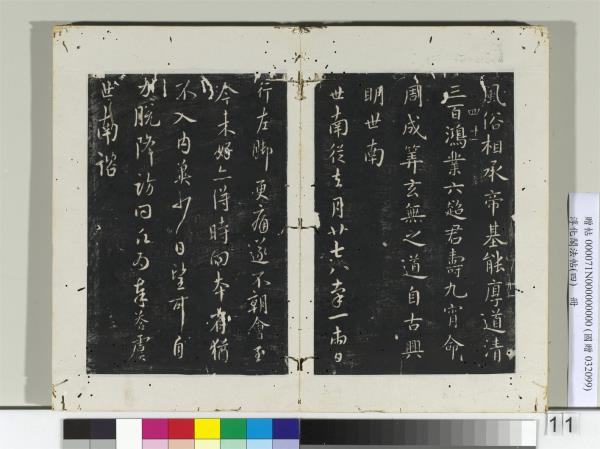 風俗相承帝基能厚道清
三百鴻業六超君壽九霄命
四十二
周成算玄無之道自古興
明世南
世南從去月廿七八率一兩日
行左脚更痛遂不朝會至
今未好亦得時向本省猶
不入內冀少日望可自
力脫降訪問願為奉答虞
世南諮
贈帖 000071N000000000 (國贈 032099)
淳化閣法帖(四) 冊
11